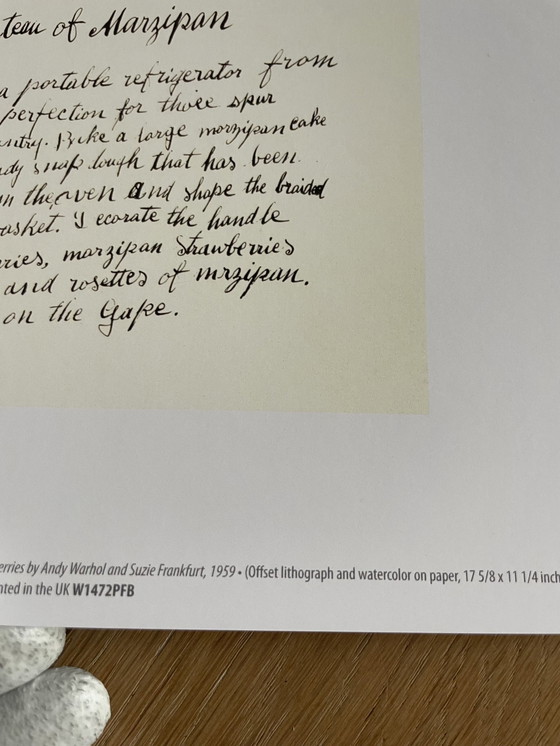 teau of Marzipan
a portable refrigerator from
perfection for those spur
ntry. Bake a large marzipan cake
dy snap dough that has been
n the oven and shape the braided
asket. Decorate the handle
rries, marzipan strawberries
and rosettes of mrzipan.
on the Gape.
erries by Andy Warhol and Suzie Frankfurt, 1959 • (Offset lithograph and watercolor on paper, 17 5/8 x 11 1/4 inch
nted in the UK W1472PFB